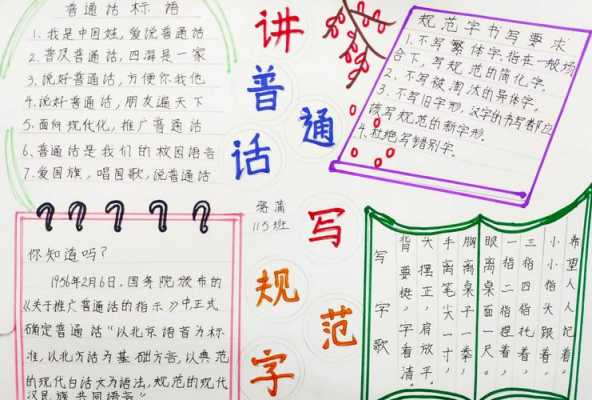 普通话标语
1、我是中国娃,爱说普通话
2、普及普通话,四海是一家
3、说好普通话,方便你我他
4、说好普通话,朋友遍天下
5、面向现代化,推广普通话
6、普通话是我们的校园语言
7、爱国旗,唱国歌,说普通话
讲普通话
写规范字
115班
规范字书写要求
1、不写繁体字.指在一般场
合下,写规范的简化字.
2、不写被淘汰的异体字.
3、不写旧字形,汉字的书写都应
该写规范的新字形.
4、杜绝写错别字.
你知道吗?
1956年2月6日,国务院颁布的
《关于推广普通话的指示》中正式
确定普通话“以北京语音为标
准,以北方话为基础方言,以典范
的现代白话文为语法,规范的现代
汉民族共同语言”
希望人人记着.
小小指头跟着.
三指四指托着,
一指二指捏着,
眼离桌面一尺.
胸离桌子一拳,
手离笔尖一寸,
大摆正,肩放平.
背要挺,字看清.
写字歌